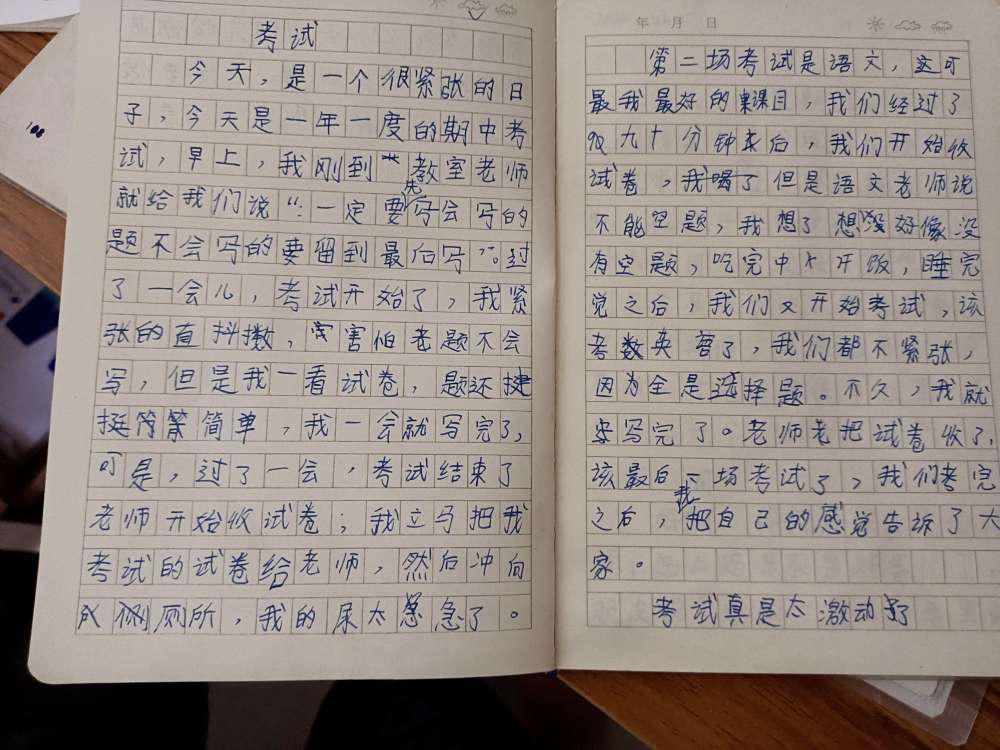 考试
今天，是一个很紧张的日
子，今天是一年一度的期中考
试，早上，我刚到教室老师
就给我们说“：一定要先写会写的
题不会写的要留到最后写”。过
了一会儿，考试开始了，我紧
张的直抖擞，害怕老题不会
写，但是我一看试卷，题还
挺简单，我一会就写完了，
可是，过了一会，考试结束了
老师开始收试卷；我立马把我
考试的试卷给老师，然后冲向
厕所，我的尿太急了。
年 月 日
第二场考试是语文，这可
最我最好的课目，我们经过了
九十分钟之后，我们开始收
试卷，我喝了但是语文老师说
不能空题，我想了想好像没
有空题，吃完中午饭，睡完
觉之后，我们又开始考试，该
考数英了，我们都不紧张，
因为全是选择题。不久，我就
写完了。老师老把试卷收了，
该最后一场考试了，我们考完
之后，我把自己的感觉告诉了大
家。
考试真是太激动了